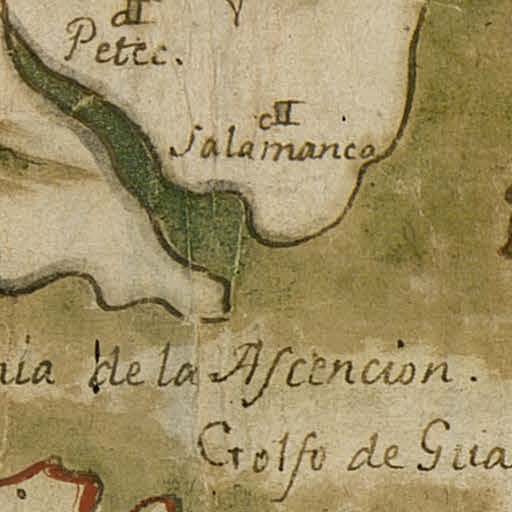 Petec.
Salamanca
de la Ascencion.
Golfo de Gua